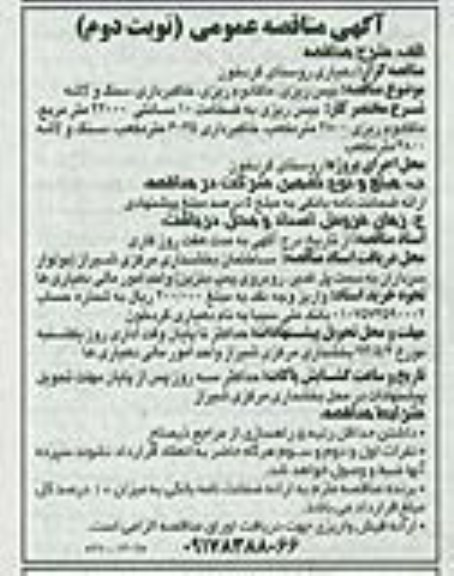 آگهی مناقصه عمومی (نوبت دوم)
الف: شرح مناقصه
مناقصه گزار: دهیاری روستای کریتقون
موضوع مناقصه: بیس ریزی، ماکادوم ریزی، خاکبرداری، سنگ و لاشه
شرح مختصر کار: بیس ریزی به ضخامت ۱۰ سانتی ۲۲۰۰۰ متر مربع،
ماکادوم ریزی متر مکعب، خاکبرداری متر مکعب، سنگ و لاشه
متر مکعب
محل اجرای پروژه: روستای
ب: مبلغ و نوع تضمین شرکت در مناقصه:
ارائه ضمانت نامه بانکی به مبلغ ۵ درصد مبلغ پیشنهادی
ج: زمان فروش اسناد و محل دریافت:
اسناد مناقصه: از تاریخ درج آگهی به مدت هفت روز کاری
محل دریافت اسناد مناقصه: ساختمان بخشداری مرکزی شیراز (بولوار
سرداران به سمت پل غدیر، روبروی پمپ بنزین) واحد امور مالی دهیاری ها
نحوه خرید اسناد: واریز وجه نقد به مبلغ ۲۰۰/۰۰۰ ریال به شماره حساب
بانک ملی سیبا به نام دهیاری
مهلت و محل تحویل پیشنهادات: حداکثر تا پایان وقت اداری روز پنجشنبه
مورخ بخشداری مرکزی شیراز واحد امور مالی دهیاری ها
تاریخ و ساعت گشایش پاکات: حداکثر سه روز پس از پایان مهلت تحویل
پیشنهادات در محل بخشداری مرکزی شیراز
شرایط مناقصه:
• داشتن حداقل رتبه ۵ راهسازی از مراجع ذیصلاح
• نفرات اول و دوم و سوم هرگاه حاضر به انعقاد قرارداد نشوند سپرده
آنها ضبط و وصول خواهد شد.
• برنده مناقصه ملزم به ارائه ضمانت نامه بانکی به میزان ۱۰ درصد کل
مبلغ قرارداد می باشد.
• ارائه فیش واریزی جهت دریافت اوراق مناقصه الزامی است.
۰۹۱۷۸۳۸۸۰۶۶